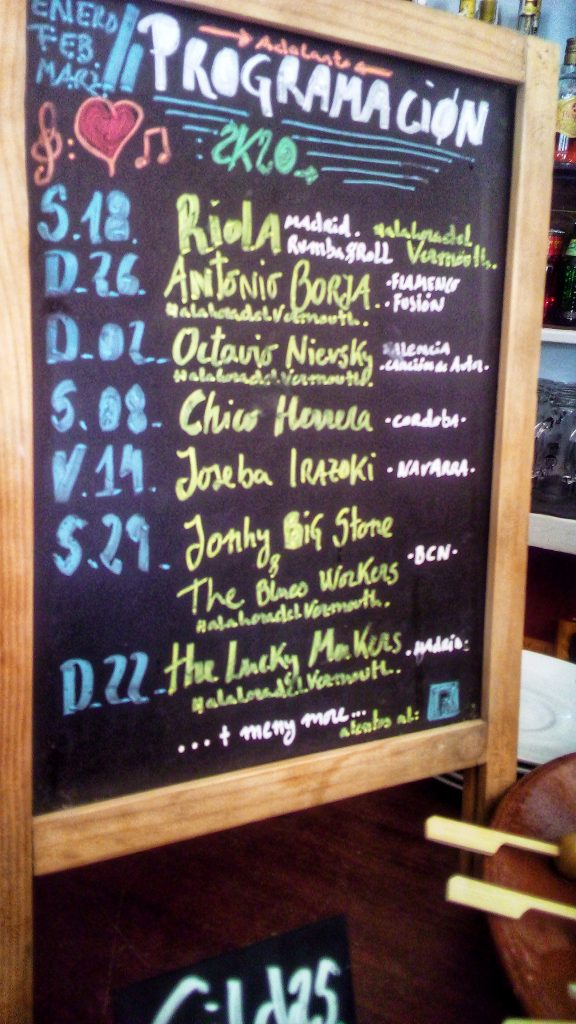 ENERO
FEB
MAR.
Adelanto
PROGRAMACIÓN
2K20
S.18. RiolA Madrid. #alahoradel
Rumba&Roll Vermouth.
D.26. ANTONIO BORJA. ·FLAMENCO
#alahoradelVermouth. FUSIÓN
D.02. Octavio Nievsky ·Canción de Autor.
#alahoradelVermouth.
S.08. Chico Herrera ·CORdoba·
V.14. Joseba IRAZOKI ·NAVARRA·
S.29. Jonhy BiG Stone
& ·BCN·
The Blues WorKers
#alahoradelVermouth.
D.22. the Lucky MaKers. ·Madrid·
#alahoradelVermouth.
...+ meny more... atentos al:
Gildas